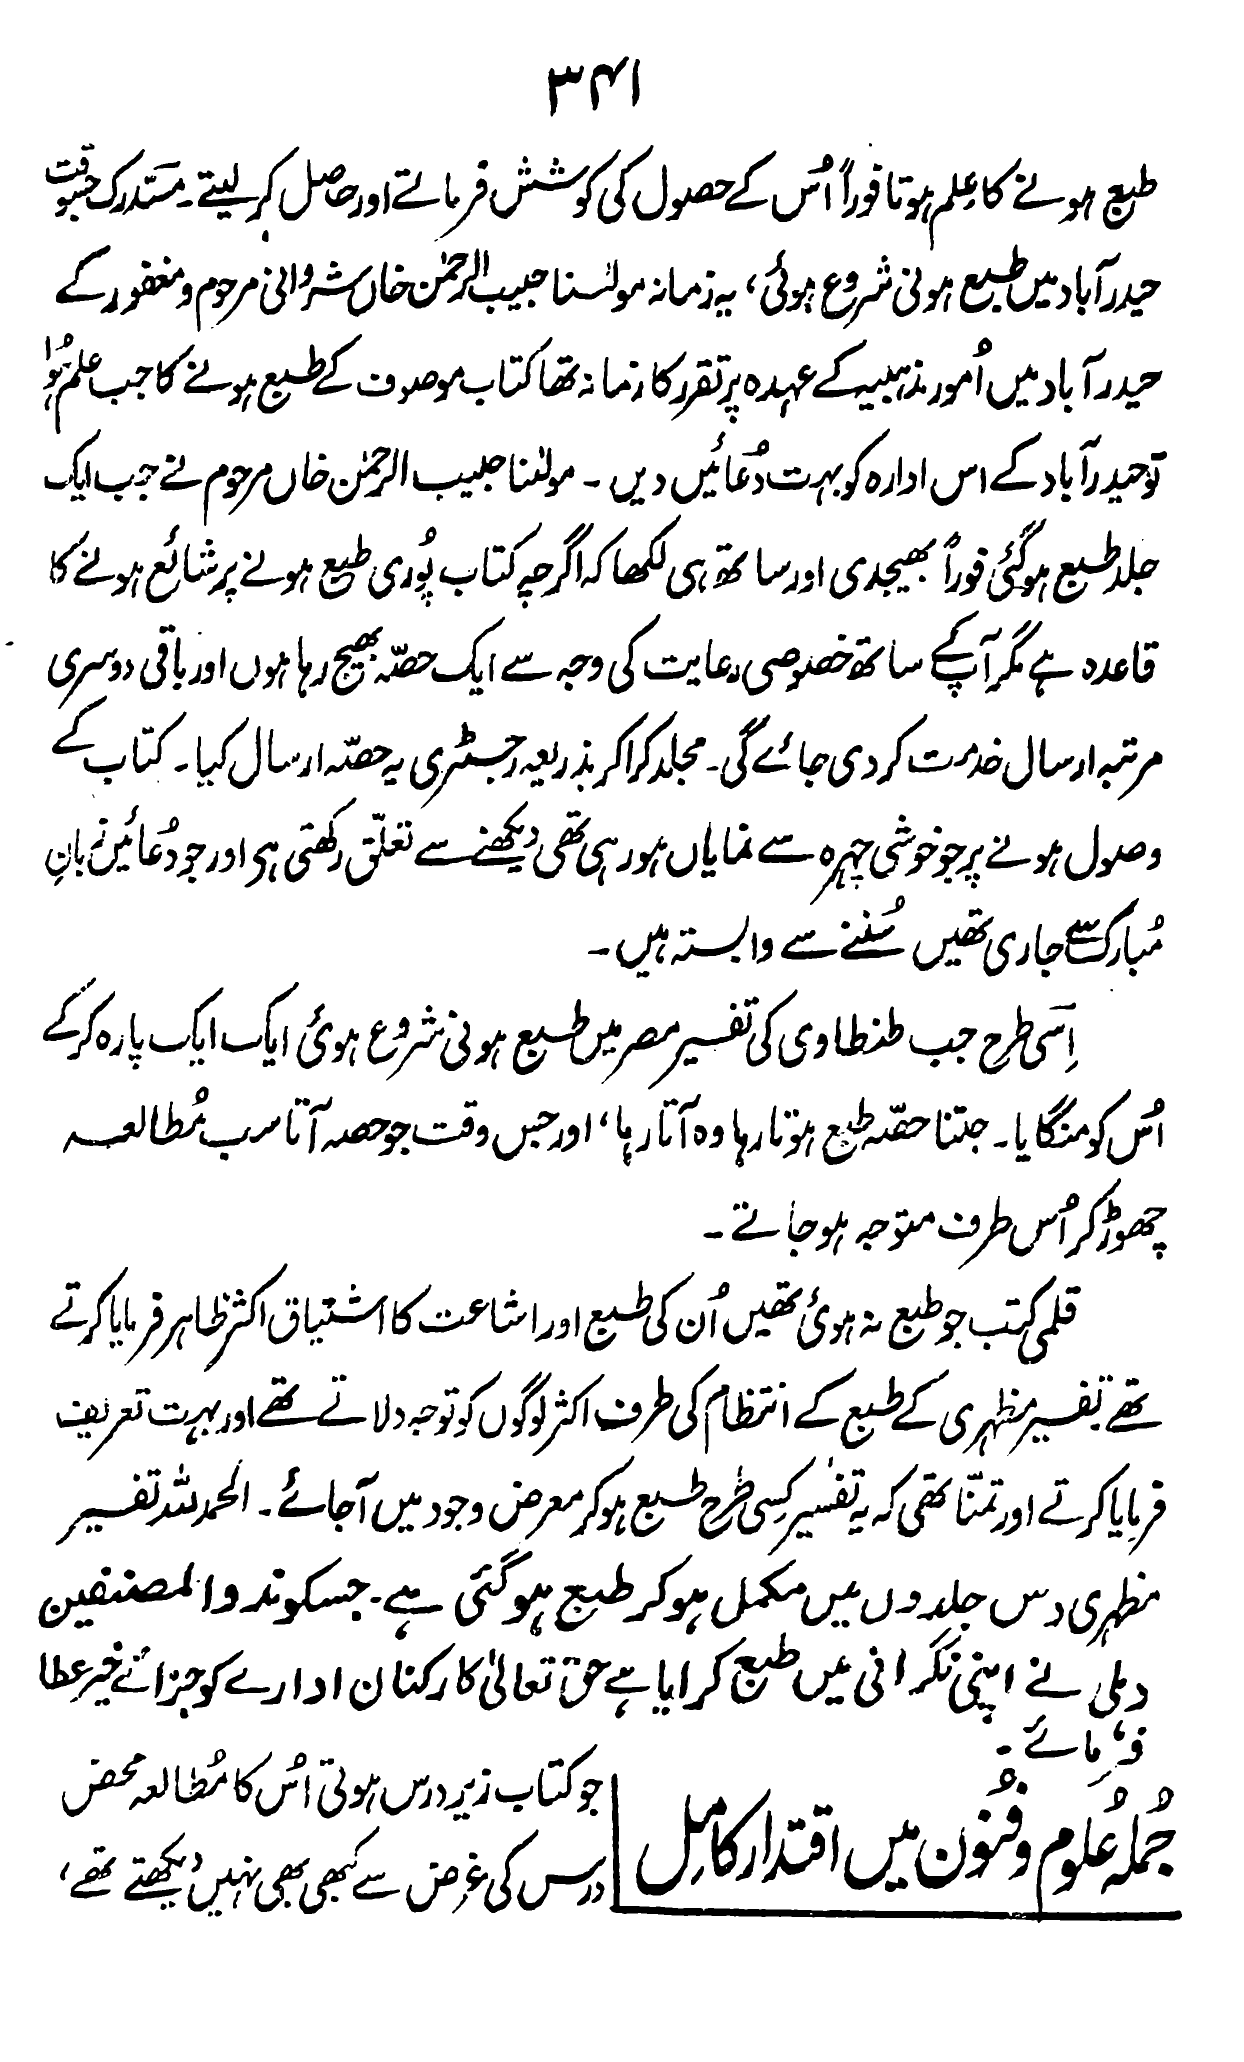 ۳۴۱
طبع ہونے کا عِلم ہوتا فوراً اُس کے حصول کی کوشش فرماتے اور حاصل کر لیتے۔ مستدرک جسوقت
حیدرآباد میں طبع ہونی شروع ہوئی، یہ زمانہ مولٰنا حبیب الرحمٰن خاں شروانی مرحوم و مغفور کے
حیدرآباد میں اُمور مذہبیہ کے عہدہ پر تقرر کا زمانہ تھا کتاب موصوف کے طبع ہونے کا جب علم ہُوا
تو حیدرآباد کے اس ادارہ کو بہت دُعائیں دیں ۔ مولٰنا حبیب الرحمٰن خاں مرحوم نے جب ایک
جلد طبع ہو گئی فوراً بھیجدی اور ساتھ ہی لکھا کہ اگرچہ کتاب پُوری طبع ہونے پر شائع ہونے کا
قاعدہ ہے مگر آپ کے ساتھ خصوصی رعایت کی وجہ سے ایک حصّہ بھیج رہا ہوں اور باقی دوسری
مرتبہ ارسال خدمت کر دی جائے گی۔ مجلد کرا کر بذریعہ رجسٹری یہ حصّہ ارسال کیا۔ کتاب کے
وصول ہونے پر جو خوشی چہرہ سے نمایاں ہو رہی تھی دیکھنے سے تعلّق رکھتی ہی اور جو دُعائیں زبانِ
مُبارک سے جاری تھیں سُننے سے وابستہ ہیں۔
اِسی طرح جب طنطاوی کی تفسیر مصر میں طبع ہونی شروع ہوئی ایک ایک پارہ کر کے
اُس کو منگایا۔ جتنا حصّہ طبع ہوتا رہا وہ آتا رہا، اور جس وقت جو حصہ آتا سب مُطالعہ
چھوڑ کر اُس طرف متوجہ ہو جاتے ۔
قلمی کتب جو طبع نہ ہوئی تھیں اُن کی طبع اور اشاعت کا اشتیاق اکثر ظاہر فرمایا کرتے
تھے تفسیر مظہری کے طبع کے انتظام کی طرف اکثر لوگوں کو توجہ دلاتے تھے اور بہت تعریف
فرمایا کرتے اور تمنّا تھی کہ یہ تفسیر کِسی طرح طبع ہو کر معرض وجود میں آ جائے۔ الحمد للہ تفسیر
مظہری دس جلدوں میں مکمل ہو کر طبع ہو گئی ہے۔ جسکو ندوالمصنفین
دہلی نے اپنی نگرانی میں طبع کرایا ہے حق تعالیٰ کارکنان ادارے کو جزائے خیر عطا
فرمائے ۔
جُملہ عُلوم و فُنون میں اقتدار کامِل
جو کتاب زیر درس ہوتی اُس کا مُطالعہ محض
درس کی غرض سے کبھی بھی نہیں دیکھتے تھے،